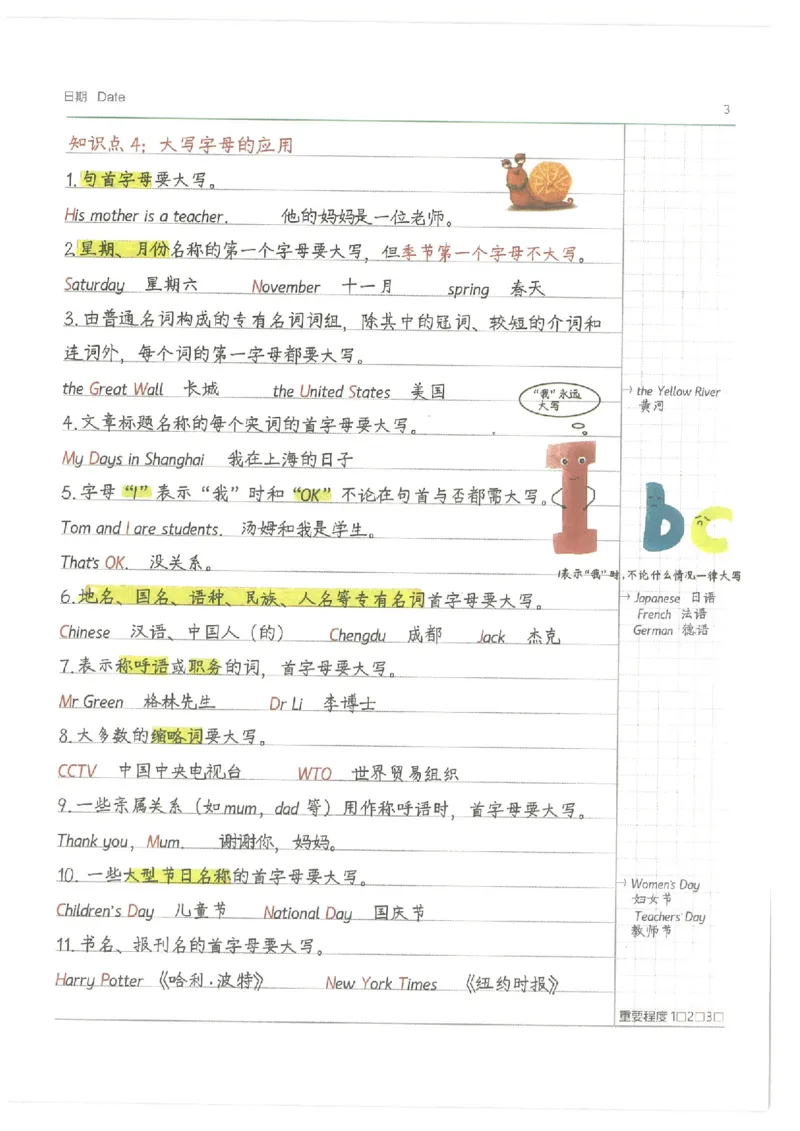 日期 Date
3
知识点 4：大写字母的应用
1. 句首字母要大写。
His mother is a teacher. 他的妈妈是一位老师。
2. 星期、月份名称的第一个字母要大写，但季节第一个字母不大写。
Saturday 星期六 November 十一月 spring 春天
3. 由普通名词构成的专有名词词组，除其中的冠词、较短的介词和
连词外，每个词的第一字母都要大写。
the Great Wall 长城 the United States 美国
“我”永远
大写
→ the Yellow River
黄河
4. 文章标题名称的每个实词的首字母要大写。
My Days in Shanghai 我在上海的日子
5. 字母“I”表示“我”时和“OK”不论在句首与否都需大写。
I
b c
Tom and I are students. 汤姆和我是学生。
That's OK. 没关系。
I表示“我”时，不论什么情况一律大写
6. 地名、国名、语种、民族、人名等专有名词首字母要大写。
→ Japanese 日语
French 法语
German 德语
Chinese 汉语、中国人（的） Chengdu 成都 Jack 杰克
7. 表示称呼语或职务的词，首字母要大写。
Mr Green 格林先生 Dr Li 李博士
8. 大多数的缩略词要大写。
CCTV 中国中央电视台 WTO 世界贸易组织
9. 一些亲属关系（如 mum，dad 等）用作称呼语时，首字母要大写。
Thank you，Mum. 谢谢你，妈妈。
10. 一些大型节日名称的首字母要大写。
→ Women's Day
妇女节
Teachers' Day
教师节
Children's Day 儿童节 National Day 国庆节
11. 书名、报刊名的首字母要大写。
Harry Potter 《哈利·波特》 New York Times 《纽约时报》
重要程度 1□2□3□